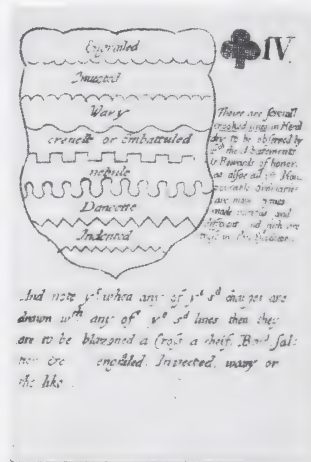 Engrailed
IV.
Invected
Wavy
crenelle or embattuled
nebule
Dancette
Indented
There are severall
crooked lines in Herald
dry to be observed by
wch the Abatements
& Rewards of honor.
as also all ye Hon
ourable Ordinaries
are many times
made various and
different and such are
these in this Scutcheon
And note yt when any of ye sd charges are
drawn wth any of ye sd lines then they
are to be blazoned a Cross a cheif. Bend Sal
engraled. Invected, wavy or
the like.